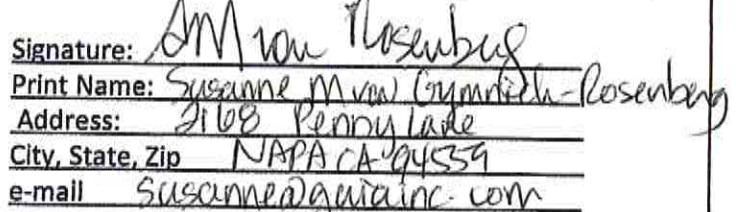 Signature: SM von Rosenberg
Print Name: Susanne M von Gymnich-Rosenberg
Address: 2168 Penny Lane
City, State, Zip NAPA CA 94559
e-mail susanne@gaiainc.com